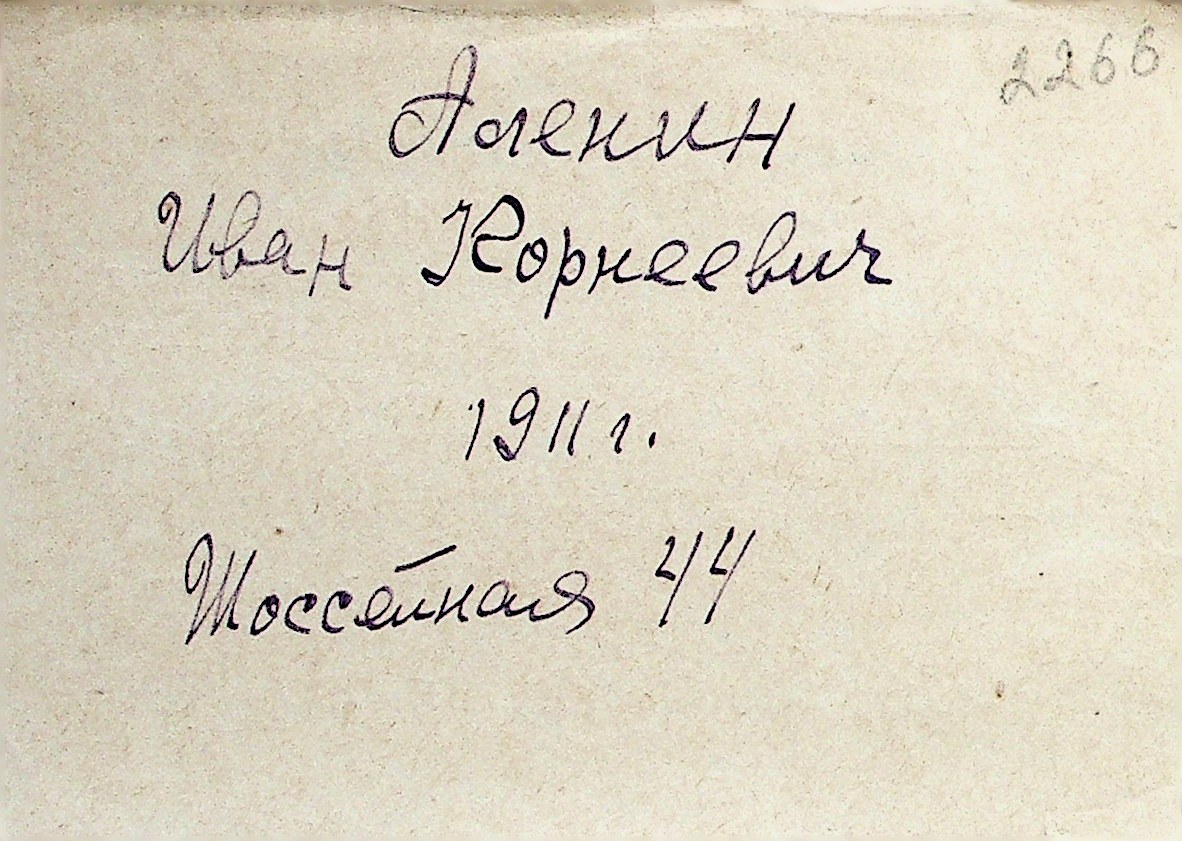 2266
Аленин
Иван Корнеевич
1911 г.
Шоссейная 44